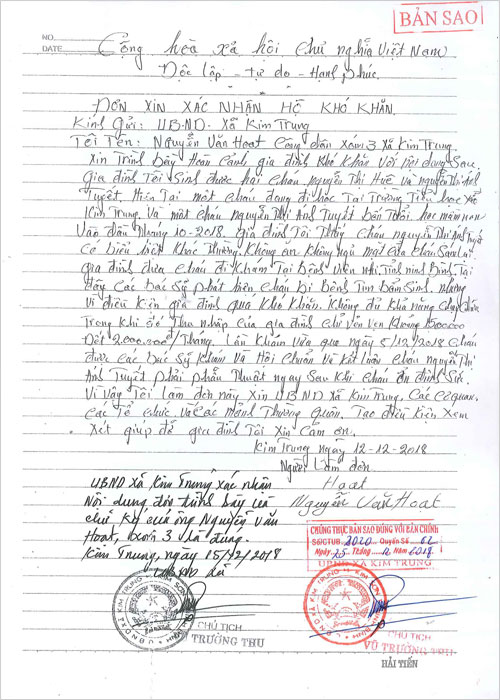 BẢN SAO
NO.
DATE
Cộng hòa xã hội chủ nghĩa Việt Nam
Độc lập - tự do - Hạnh phúc.
ĐƠN XIN XÁC NHẬN HỘ KHÓ KHĂN.
Kính Gửi: UBND - Xã Kim Trung
Tôi Tên: Nguyễn Văn Hoạt Công dân xóm 3 Xã Kim Trung.
Xin Trình bày Hoàn Cảnh gia đình Khó Khăn Với nội dung Sau
Gia đình Tôi Sinh được hai cháu. nguyễn Thị Huê và nguyễn Thị Ánh
Tuyết. Hiện Tại một cháu đang đi học Tại Trường Tiểu học xã
Kim Trung. Và một cháu nguyễn Thị Ánh Tuyết đến Tuổi học mầm non
Vào đầu Tháng 10-2018. gia đình Tôi Thấy cháu nguyễn Thị Ánh Tuyết
Có biểu hiện Khác Thường, Không ăn Không ngủ mặt của cháu
gia đình đưa cháu đi Khám Tại Bệnh Viện Nhi Tỉnh ninh Bình Tại
đây Các Bác Sỹ phát hiện cháu bị Bệnh Tim Bẩm Sinh. Nhưng
Vì điều Kiện gia đình quá Khó Khăn. Không đủ Khả năng
Trong Khi đó Thu nhập Của gia đình chỉ vẻn vẹn Khoảng 1500000
Đến 2.000.000/Tháng. Lần Khám Vừa qua ngày 5/12/2018 Cháu
được Các Bác Sỹ Khám và Hội Chuẩn Và Kết luận cháu nguyễn Thị
Ánh Tuyết phải phẫu Thuật ngay Sau Khi cháu ổn định Sức
Vì Vậy Tôi làm đơn này Xin UBND Xã Kim Trung. Các Cơ quan.
Các Tổ Chức và Các mạnh Thường Quân. Tạo điều Kiện Xem
Xét giúp đỡ gia đình Tôi Xin Cảm ơn.
Kim Trung ngày 12-12-2018
Người làm đơn
Hoạt
Nguyễn Văn Hoạt
UBND xã Kim Trung xác nhận
Nội dung đơn trình bày và
chữ ký của ông Nguyễn Văn
Hoạt, xóm 3 là đúng.
Kim Trung, ngày 15/12/2018
CHỦ TỊCH
VŨ TRƯỜNG THU
CHỨNG THỰC BẢN SAO ĐÚNG VỚI BẢN CHÍNH
Số/CTUB. 2020 Quyển Số 02
Ngày 25 Tháng 12 Năm 2018
UBND XÃ KIM TRUNG
CHỦ TỊCH
VŨ TRƯỜNG THU
HẢI TIẾN